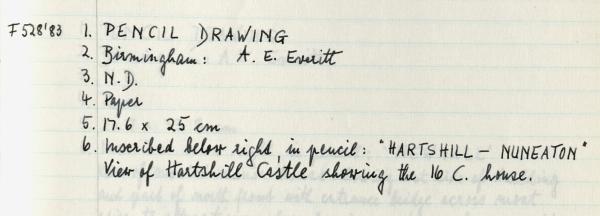 F528'83 1. PENCIL DRAWING
2. Birmingham: A. E. Everitt
3. N.D.
4. Paper
5. 17.6 x 25 cm
6. Inscribed below right, in pencil: "HARTSHILL – NUNEATON"
View of Hartshill Castle showing the 16 C. house.